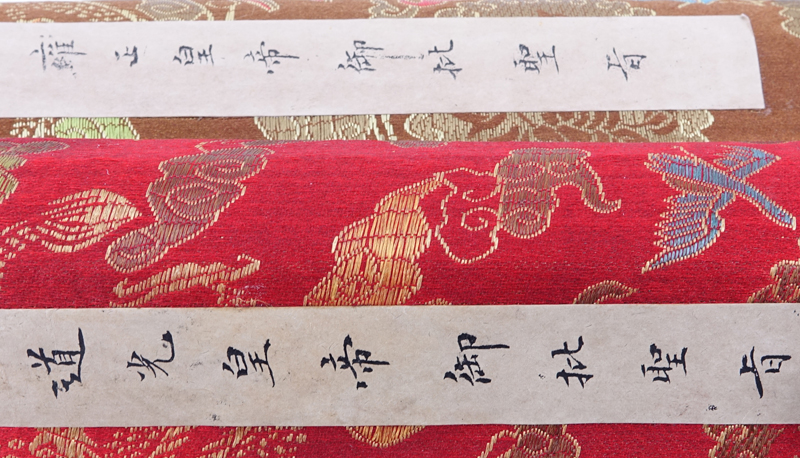 雍正皇帝御批聖旨
道光皇帝御批聖旨